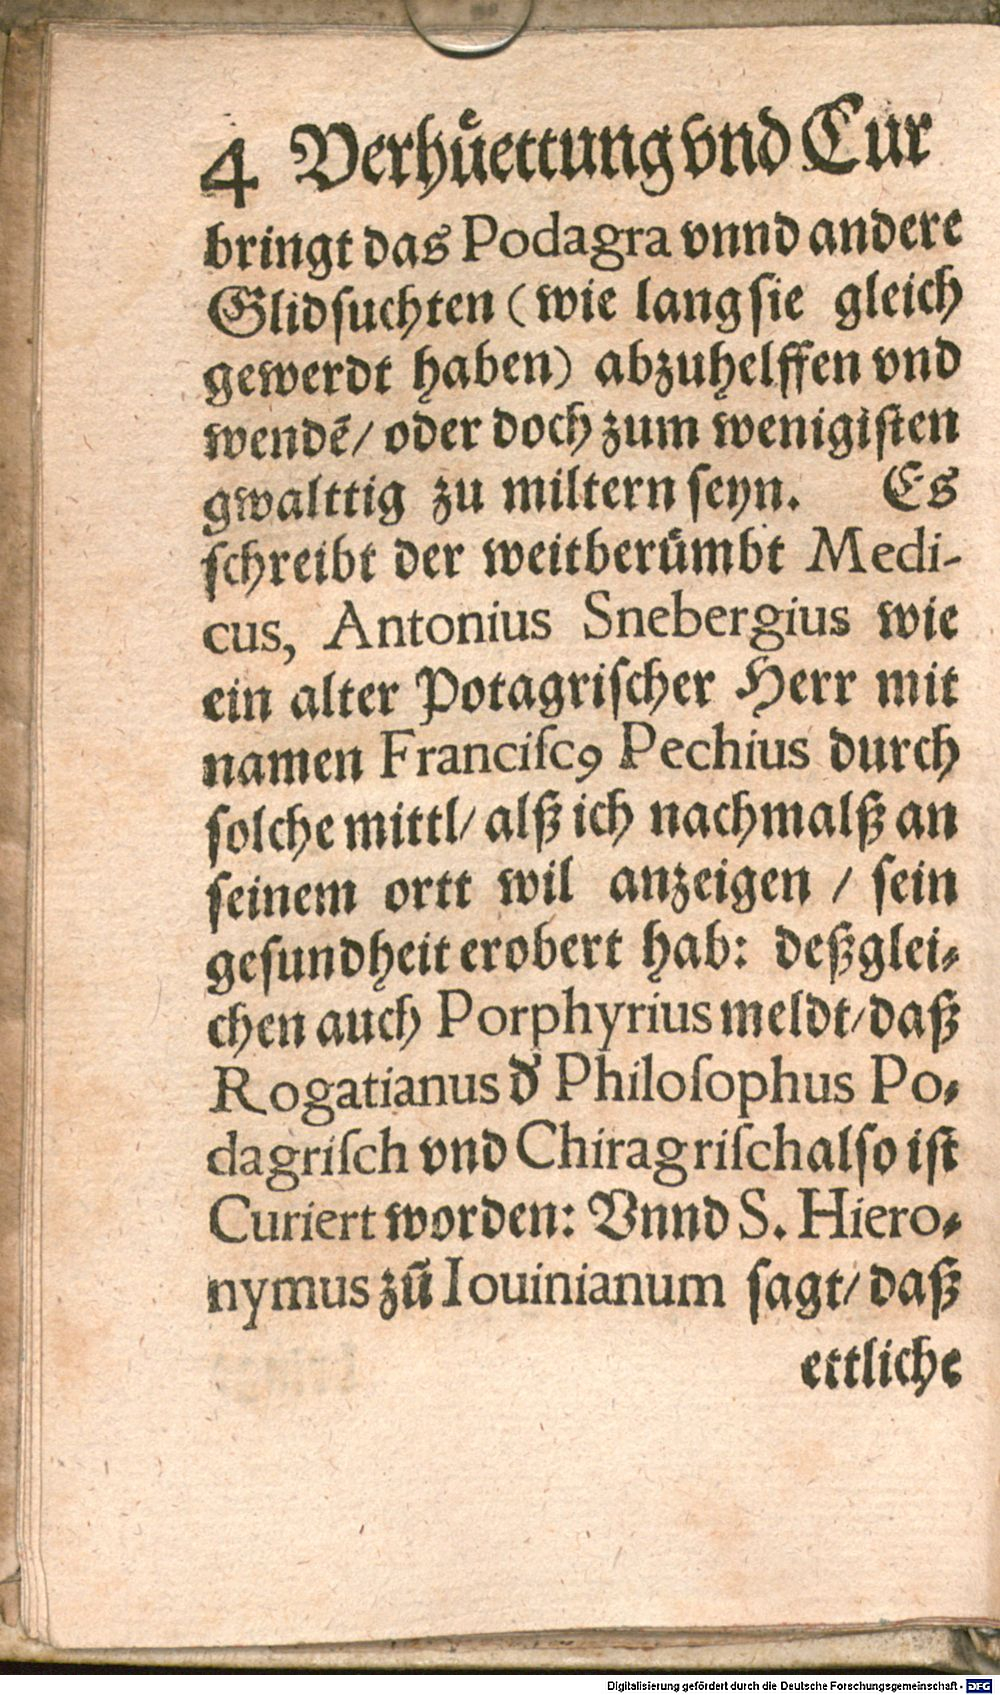 4 Verhuͤettung vnd Cur
bringt das Podagra vnnd andere
Glidſuchten (wie lang ſie gleich
gewerdt haben) abzuhelffen vnd
wendē/ oder doch zum wenigiſten
gwalttig zu miltern ſeyn. Es
ſchreibt der weitberuͤmbt Medi-
cus, Antonius Snebergius wie
ein alter Potagriſcher Herr mit
namen Franciſcꝰ Pechius durch
ſolche mittl/ alß ich nachmalß an
ſeinem ortt wil anzeigen / ſein
geſundheit erobert hab: deßglei⸗
chen auch Porphyrius meldt/ daß
Rogatianus d' Philoſophus Po⸗
dagriſch vnd Chiragriſch alſo iſt
Curiert worden: Vnnd S. Hiero⸗
nymus zū Iouinianum ſagt/ daß
ettliche
Digitalisierung gefördert durch die Deutsche Forschungsgemeinschaft - DFG